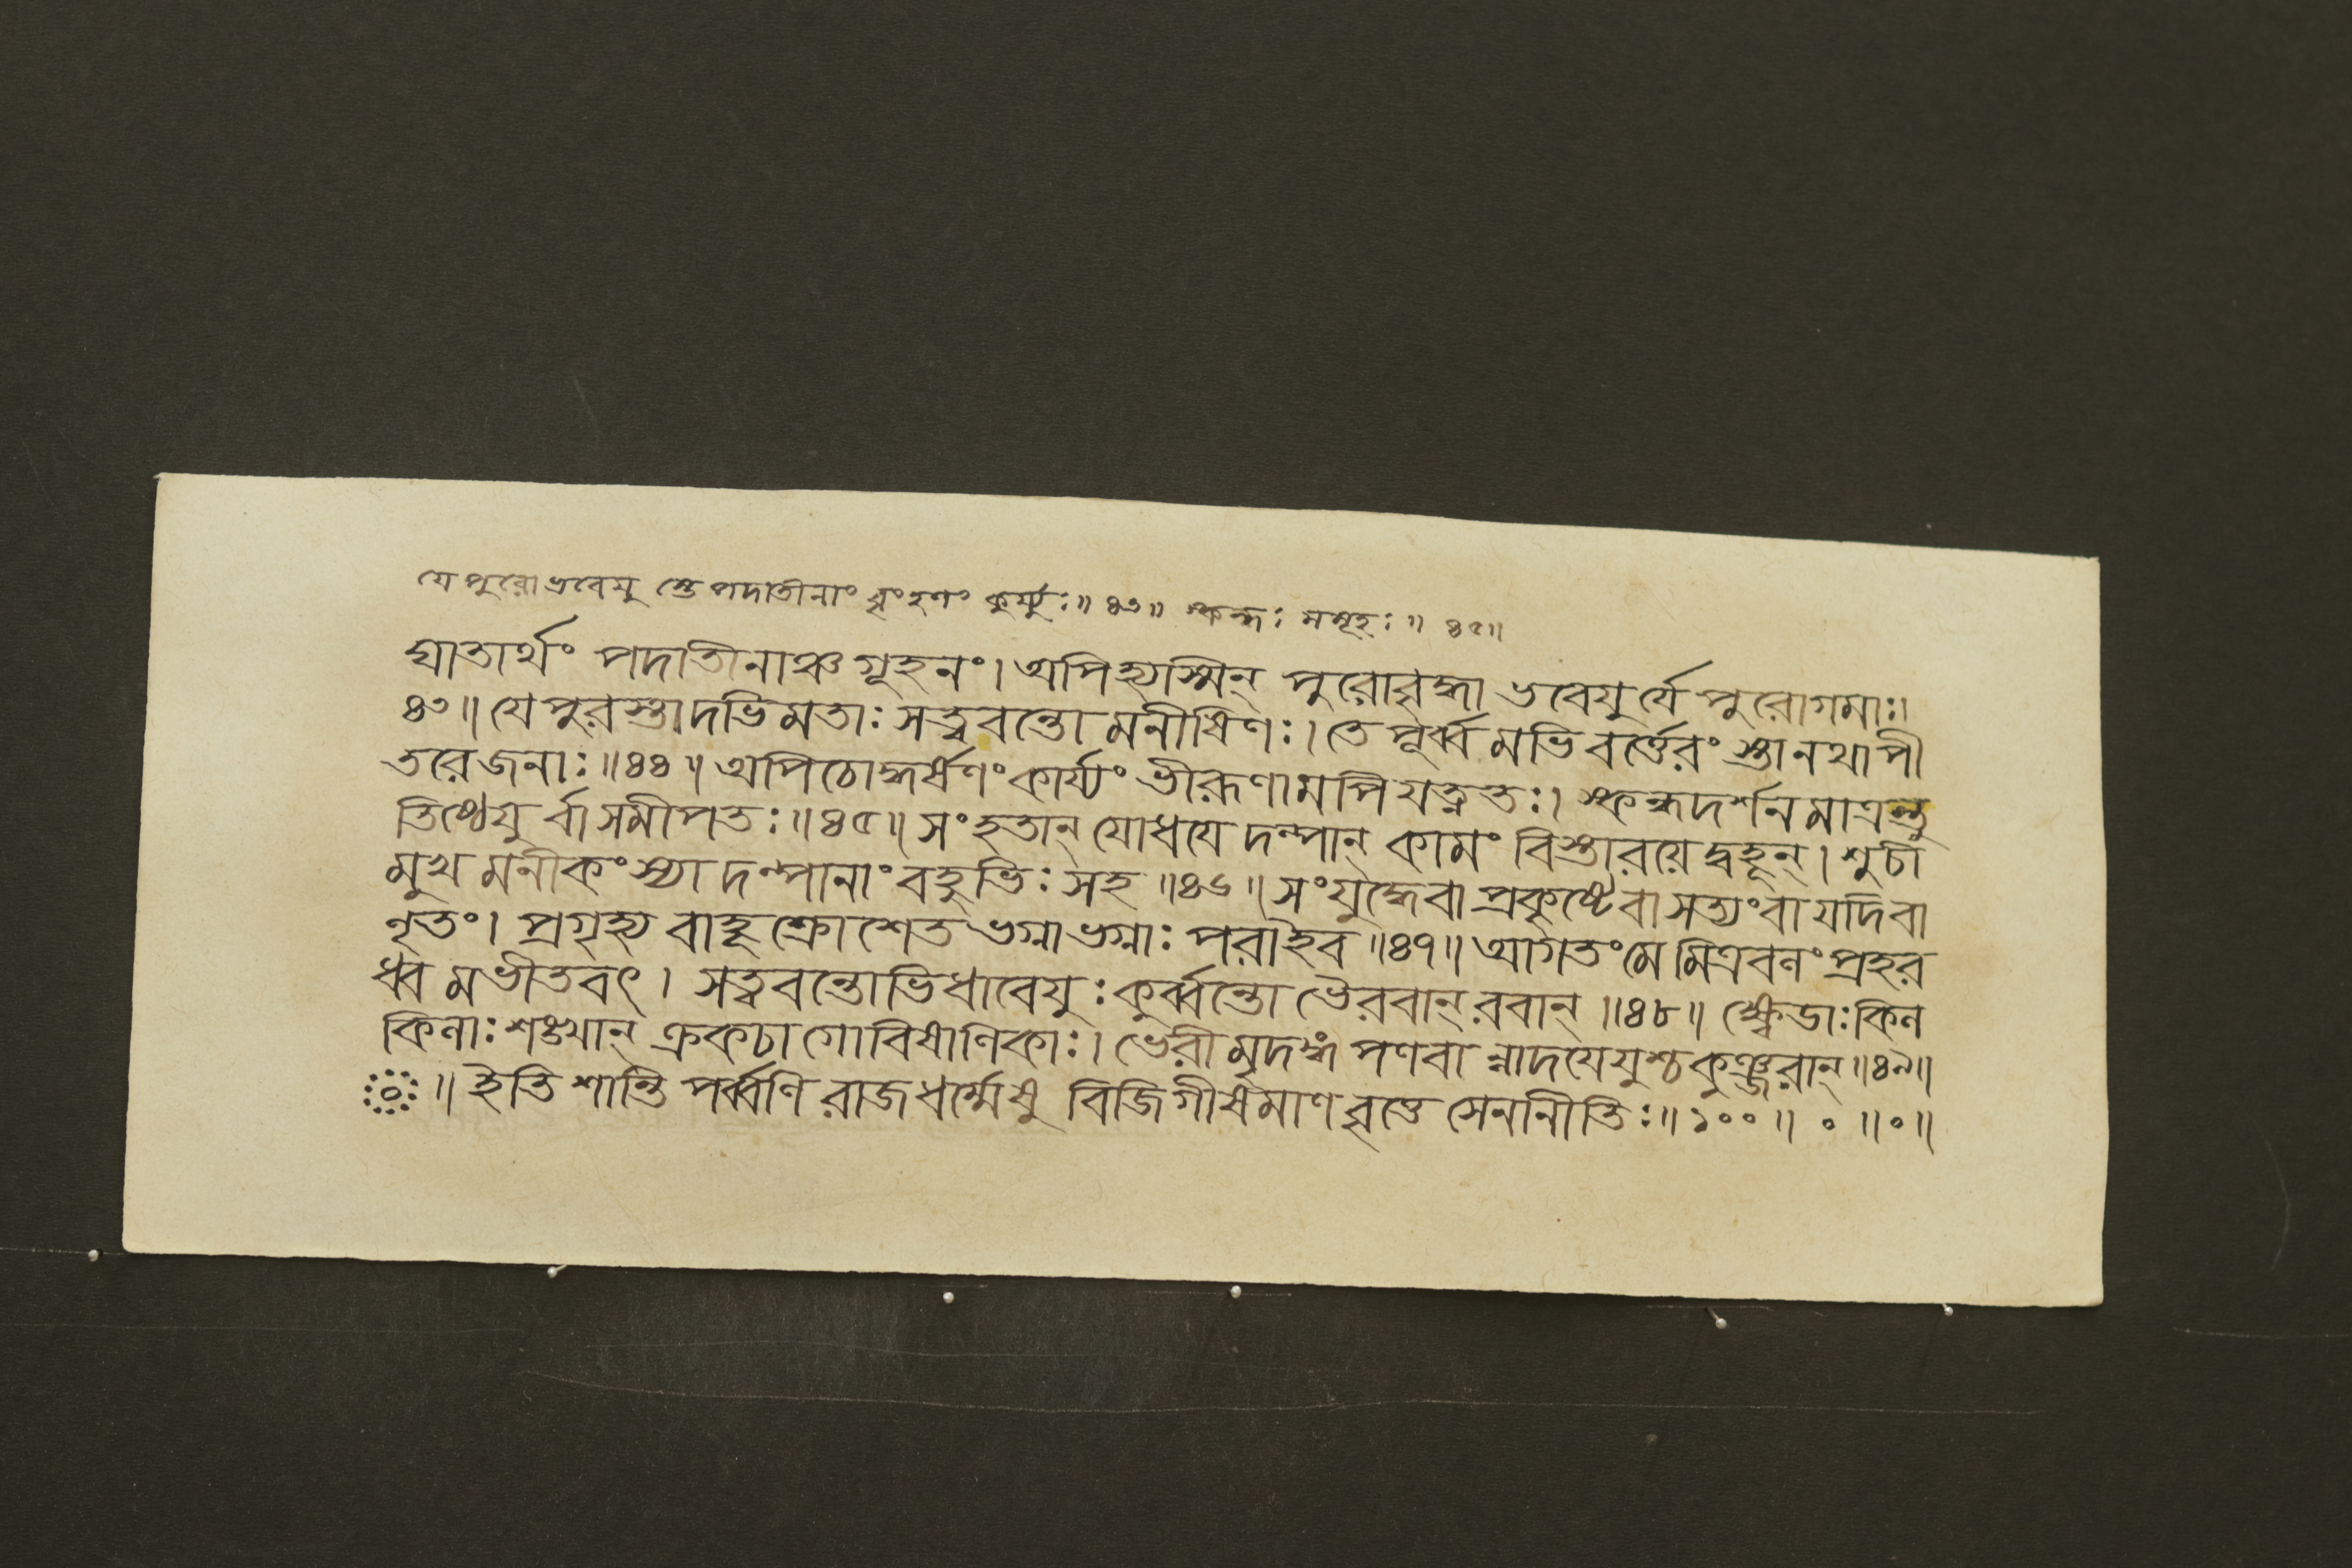 যে পুরোভবেয়ু স্তে পদাতীনাং বৃংহণং কুর্য্যুঃ॥ ৪৩॥ স্কন্ধঃ সমূহঃ॥ ৪৫॥
ঘাতার্থং পদাতীনাঞ্চগূহনং। অপিহ্যস্মিন্ পুরোবৃদ্ধা ভবেয়ুর্যে পুরোগমাঃ।
৪৩॥ যেপুরস্তাদভিমতাঃ সত্ত্ববন্তো মনীষিণঃ। তে পূর্ব্বমভিবর্ত্তেরং স্তানথাপী
তরেজনাঃ॥৪৪॥ অপিচোদ্ধর্ষণং কার্য্যং ভীরূণামপিযত্নতঃ। স্কন্ধদর্শনমাত্রন্তু
তিষ্ঠেয়ুর্বাসমীপতঃ॥৪৫॥ সংহতান্ যোধয়েদল্পান্ কামং বিস্তারয়েদ্বহূন্। শুচী
মুখমনীকংস্যাদল্পানাং বহুভিঃ সহ॥৪৬॥ সংযুদ্ধেবা প্রকৃষ্টেবা সত্যংবা যদিবা
নৃতং। প্রগৃহ্য বাহূ ক্রোশেত ভগ্নাভগ্নাঃ পরাইব॥৪৭॥ আগতংমে মিত্রবলং প্রহর
ধ্বমভীতবৎ। সত্ত্ববন্তোভিধাবেয়ুঃ কুর্ব্বন্তো ভৈরবান্ রবান্॥৪৮॥ ক্ষ্বেডাঃকিল
কিলাঃ শঙ্খান্ ক্রকচা গোবিষাণিকাঃ। ভেরীমৃদঙ্গ পণবা ন্নাদয়েয়ুশ্চকুঞ্জরান্॥৪৯॥
॥ ইতি শান্তিপর্ব্বণি রাজধর্ম্মেষু বিজিগীষমাণবৃত্তে সেননীতিঃ॥ ১০০॥ ০ ॥০॥